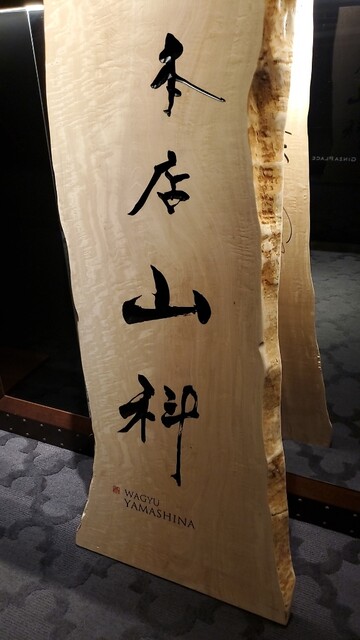 本店山科
WAGYU
YAMASHINA
GINZA PLACE